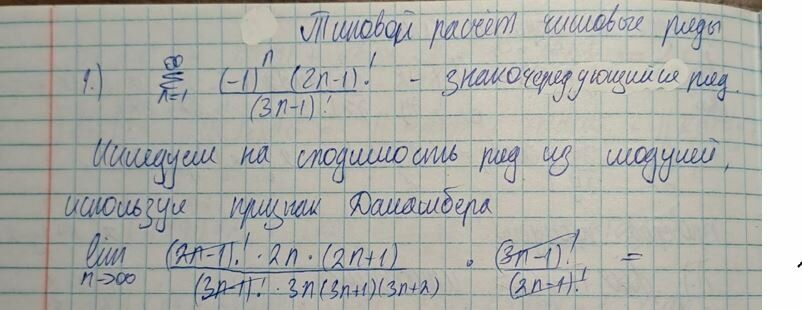 Типовой расчёт числовые ряды
1.) ∞ Σ n=1 (-1)^n (2n-1)! / (3n-1)! - знакочередующийся ряд.
Исследуем на сходимость ряд из модулей,
используя признак Даламбера
lim n→∞ (2n-1)! · 2n · (2n+1) / (3n-1)! · 3n(3n+1)(3n+2) · (3n-1)! / (2n-1)! =